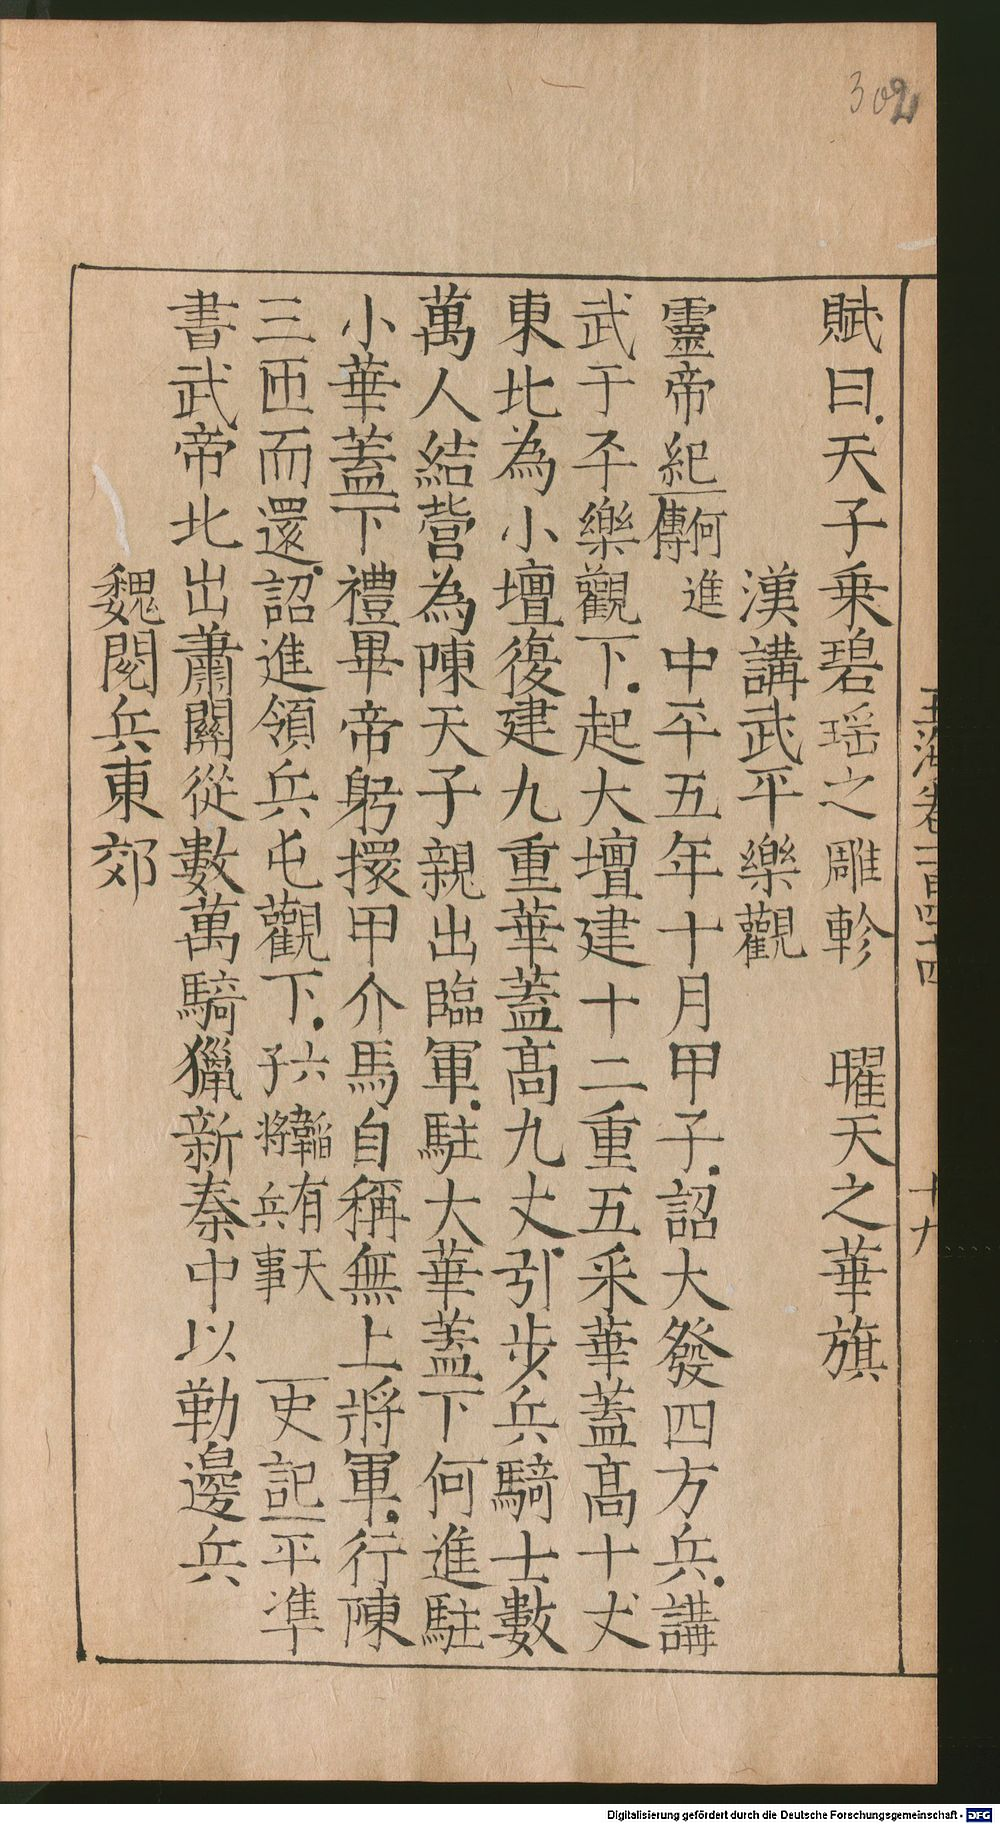 302
玉海卷一百四十四
十九
賦曰天子乗碧瑶之雕軫　曜天之華旗
漢講武平樂觀
靈帝紀何進傳中平五年十月甲子詔大發四方兵講
武于平樂觀下起大壇建十二重五采華蓋髙十丈
東北為小壇復建九重華蓋髙九丈引步兵騎士數
萬人結營為陳天子親出臨軍駐大華蓋下何進駐
小華蓋下禮畢帝躬擐甲介馬自稱無上將軍行陳
三匝而還詔進領兵屯觀下六韜有天子将兵事　史記平準
書武帝北出蕭關從數萬騎獵新秦中以勒邊兵
魏閱兵東郊
Digitalisierung gefördert durch die Deutsche Forschungsgemeinschaft - DFG